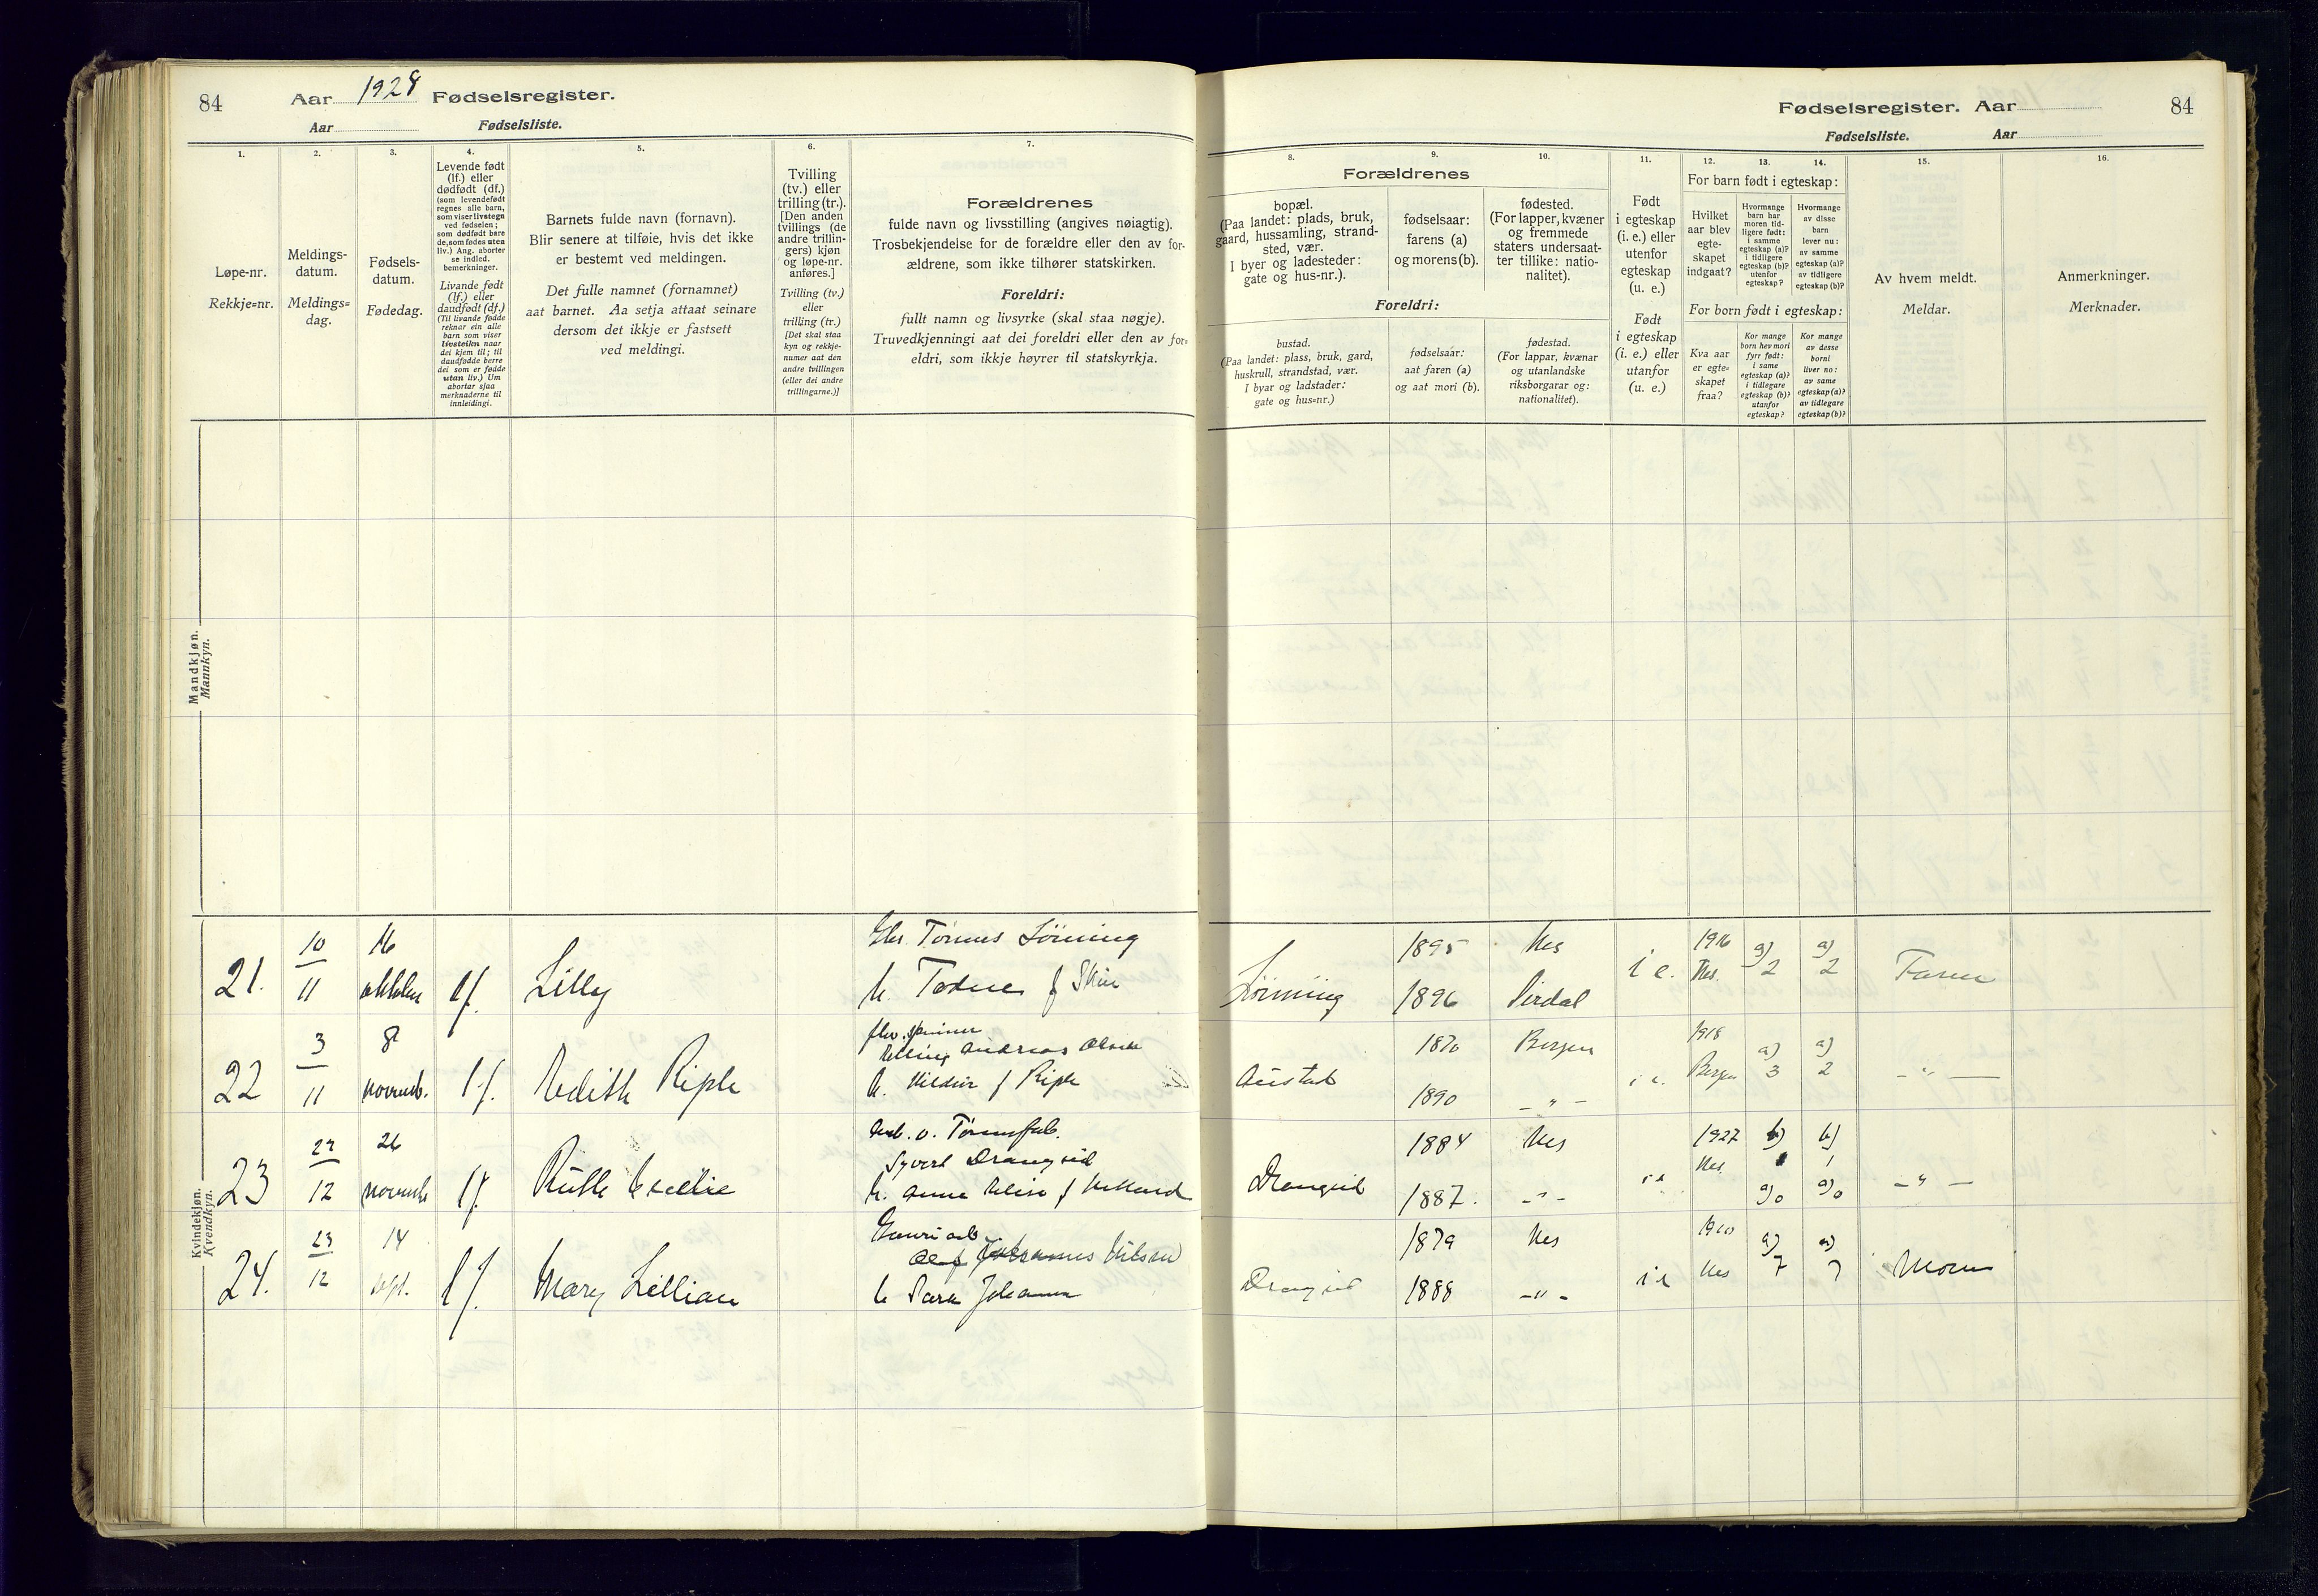 84
Aar 1928 Fødselsregister.
Aar Fødselsliste.
1.
2.
3.
4.
5.
6.
7.
Løpe-nr.
Rekkje=nr.
Meldings-
datum.
Meldings=
dag.
Fødsels-
datum.
Fødedag.
Levende født
(lf.) eller
dødfødt (df.)
(som levendefødt
regnes alle barn,
som viser livstegn
ved fødselen;
som dødfødt bare
de, som fødes uten
liv.) Ang. aborter
se indled.
bemerkninger.
Livande født
(lf.) eller
daudfødt (df.)
(Til livande fødde
reknar ein alle
barn som viser
livsteikn naar
dei kjem til; til
daudfødde berre
dei som er fødde
utan liv.) Um
abortar sjaa
merknaderne til
innleidingi.
Barnets fulde navn (fornavn).
Blir senere at tilføie, hvis det ikke
er bestemt ved meldingen.
Det fulle namnet (fornamnet)
aat barnet. Aa setja attaat seinare
dersom det ikkje er fastsett
ved meldingi.
Tvilling
(tv.) eller
trilling (tr.).
[Den anden
tvillings (de
andre trillin-
gers) kjøn
og løpe-nr.
anføres.]
Tvilling (tv.)
eller
trilling (tr.)
[Det skal staa
kyn og rekkje-
numer aat den
andre tvillingen
(eller dei andre
trillingarne.)]
Forældrenes
fulde navn og livsstilling (angives nøiagtig).
Trosbekjendelse for de forældre eller den av for-
ældrene, som ikke tilhører statskirken.
Foreldri:
fullt namn og livsyrke (skal staa nøgje).
Truvedkjenningi aat dei foreldri eller den av for=
eldri, som ikkje høyrer til statskyrkja.
Mandkjøn.
Mannkyn.
Kvindekjøn.
Kvendkyn.
21.
10
11
16
oktober
lf.
Lilly
Tønnes Lönning
h. Todne f Skin
22
3
11
8
novemb.
lf.
Edith Riple
Andreas Olsen
h. Hildur f Riple
23
27
12
26
novemb
lf.
Ruth Cecelie
Arb. v. Tønnefab.
Syvert Drangeid
h. Anna Elise f
24.
23
12
14
sept.
lf.
Mary Lillian
Olaf Johannes Nilsen
h Sara Johanna
Fødselsregister. Aar
84
Fødselsliste. Aar
8.
9.
10.
11.
12.
13.
14.
15.
16.
Forældrenes
bopæl.
(Paa landet: plads, bruk,
gaard, hussamling, strand-
sted, vær.
I byer og ladesteder:
gate og hus-nr.).
fødselsaar:
farens (a)
og morens (b).
fødested.
(For lapper, kvæner
og fremmede
staters undersaat-
ter tillike: natio-
nalitet).
Foreldri:
bustad.
(Paa landet: plass, bruk, gard,
huskrull, strandstad, vær.
I byar og ladstader:
gate og hus=nr.)
fødselsaar:
aat faren (a)
og aat mori (b).
fødestad.
(For lappar, kvænar
og utanlandske
riksborgarar og:
nationalitet).
Født
i egteskap
(i. e.) eller
utenfor
egteskap
(u. e.)
Født
i egteskap
(i. e.) eller
utanfor
(u. e.)
For barn født i egteskap:
Hvilket
aar blev
egte-
skapet
indgaat?
Hvormange
barn har
moren tid-
ligere født:
i samme
egteskap (a)?
i tidligere
egteskap (b)?
utenfor
egteskap?
Hvormange
av disse
barn
lever nu:
av samme
egteskap (a)?
av tidligere
egteskap (b)?
For born født i egteskap:
Kva aar
er egte=
skapet
fraa?
Kor mange
born hev mori
fyrr født:
i same
egteskap (a)?
i tidlegare
egteskap (b)?
utanfor
egteskap?
Kor mange
av desse
borni
liver no:
av same
egteskap (a)?
av tidlegare
egteskap (b)?
Av hvem meldt.
Meldar.
Anmerkninger.
Merknader.
Lönning
1895
1896
Nes
Sirdal
i e.
1916
Nes.
a) 2
a) 2
Faren
Austad
1870
1890
Bergen
- " -
i e.
1918
Bergen
a) 3
a) 2
- " -
Drangeid
1884
1887.
Nes
- " -
i e
1927
Nes
b)
a) 0
b) 1
a) 0
- " -
Drangeid
1879
1888
Nes
- " -
i e
1910
Nes
a) 7
a) 7
Moren